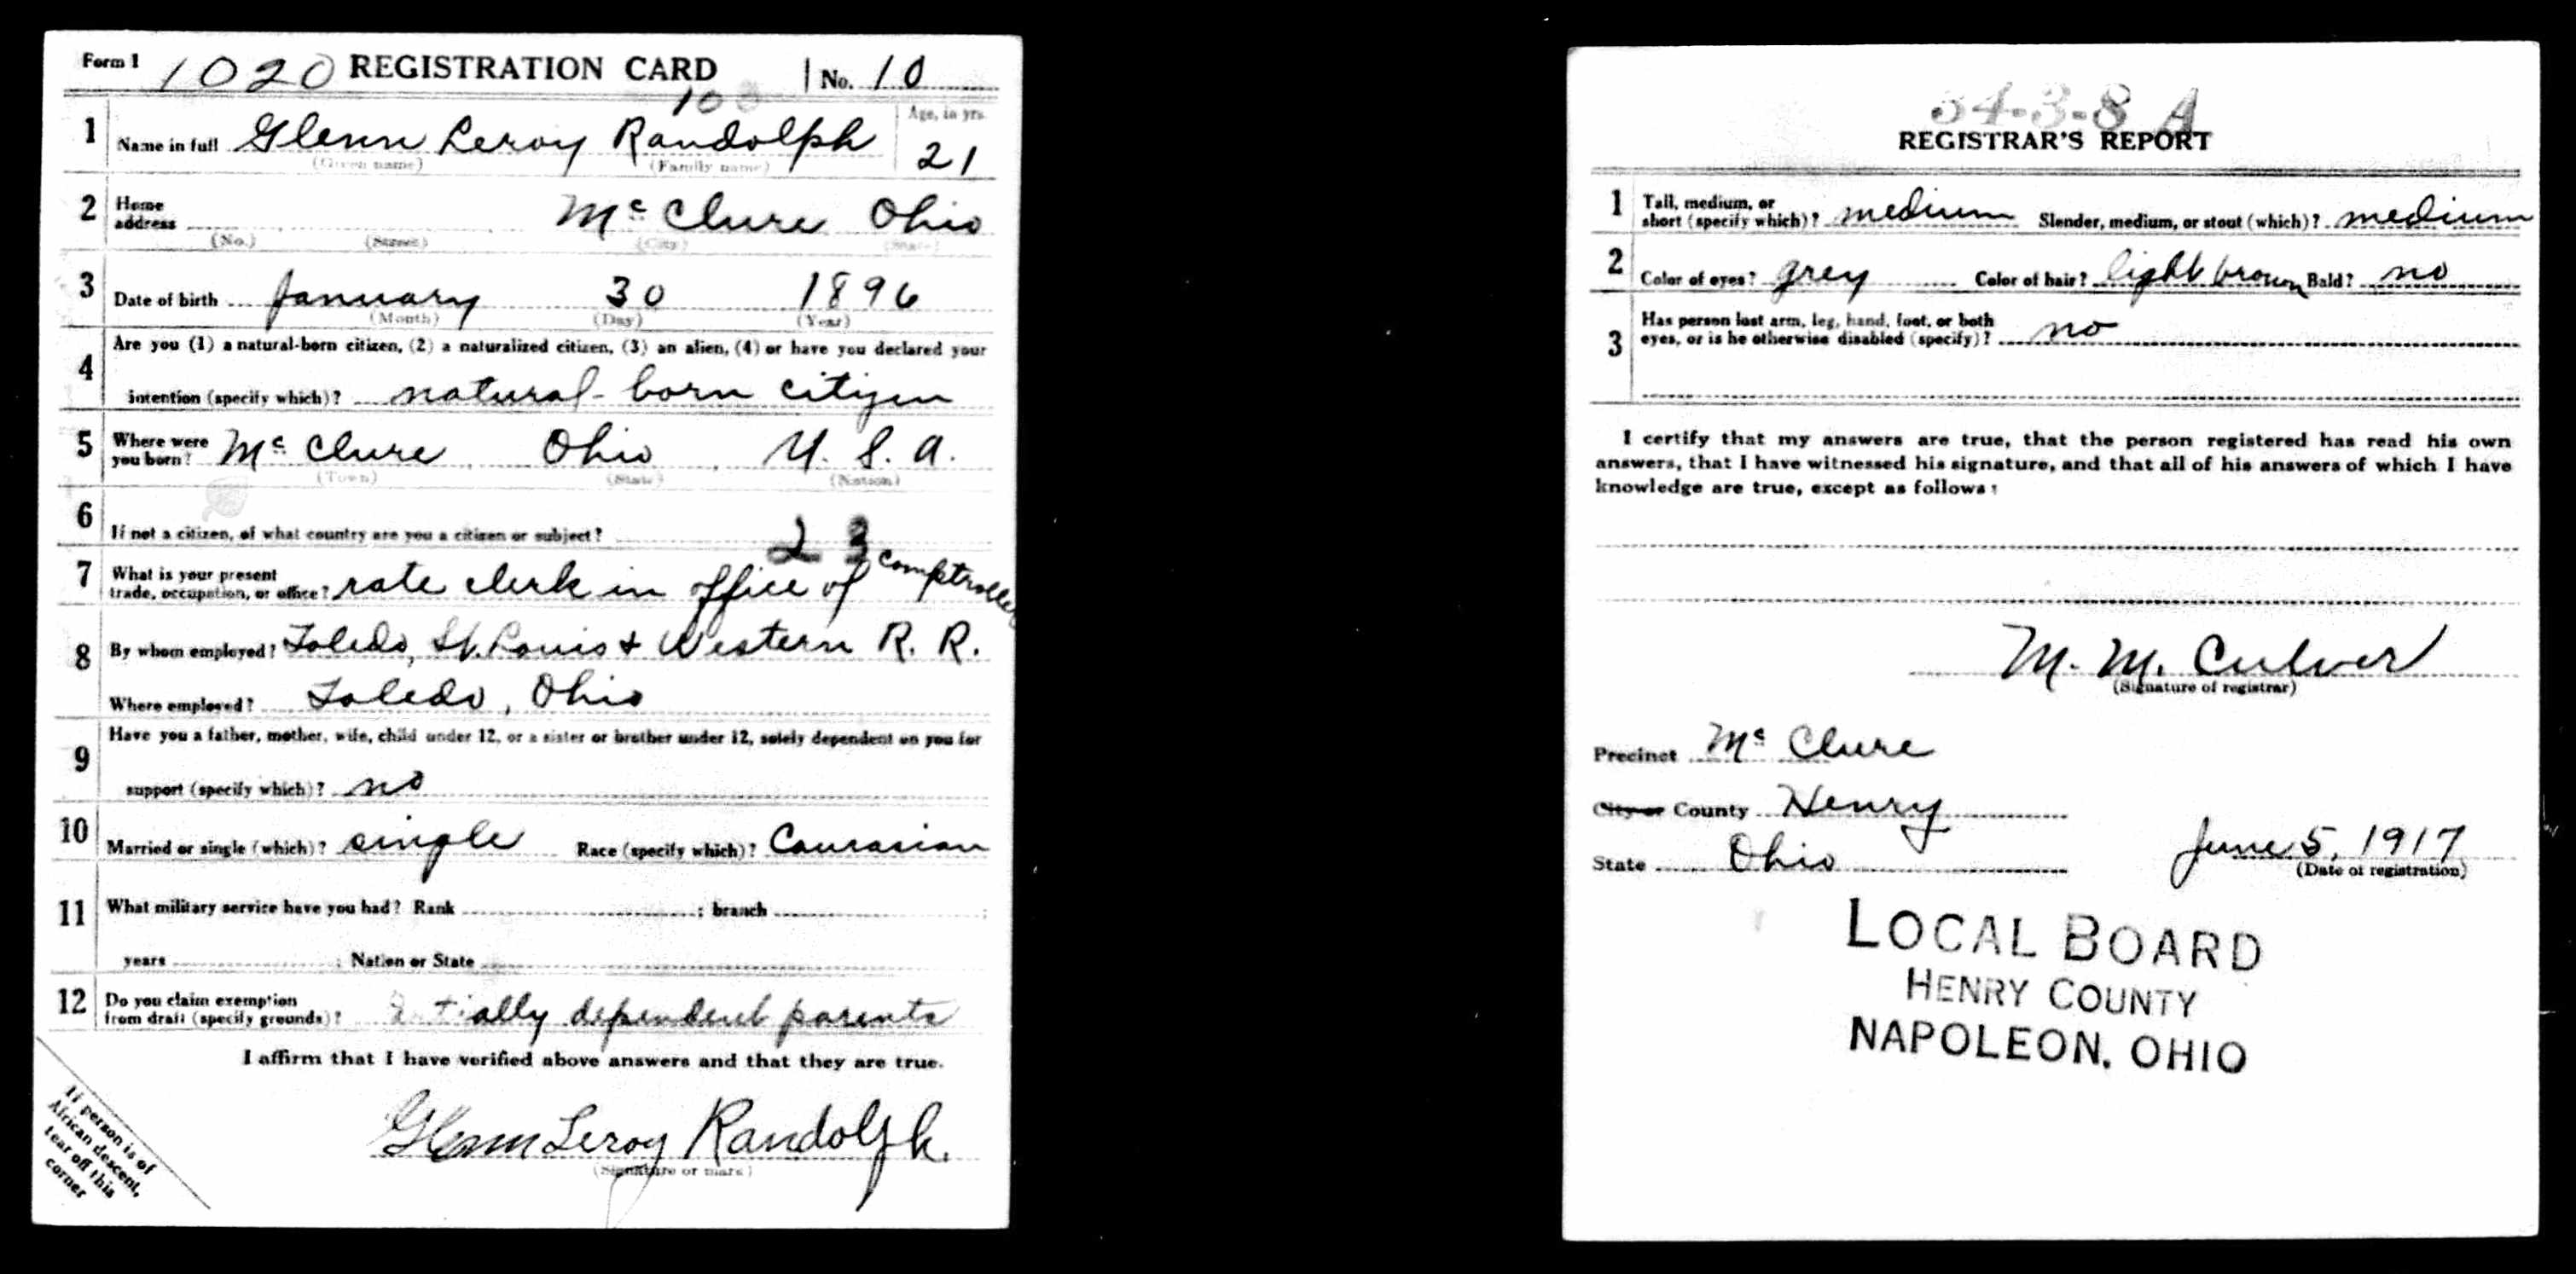 Form 1 1020 REGISTRATION CARD No. 10
10
1 Name in full Glenn Leroy Randolph Age, in yrs. 21
(Given name) (Family name)
2 Home address McClure Ohio
(No.) (Street) (City) (State)
3 Date of birth January 30 1896
(Month) (Day) (Year)
4 Are you (1) a natural-born citizen, (2) a naturalized citizen, (3) an alien, (4) or have you declared your
intention (specify which)? natural-born citizen
5 Where were you born? McClure Ohio U.S.A.
(Town) (State) (Nation)
6 If not a citizen, of what country are you a citizen or subject?
23
7 What is your present trade, occupation, or office? rate clerk in office of comptroller
8 By whom employed? Toledo, St. Louis & Western R. R.
Where employed? Toledo, Ohio
9 Have you a father, mother, wife, child under 12, or a sister or brother under 12, solely dependent on you for
support (specify which)? no
10 Married or single (which)? single Race (specify which)? Caucasian
11 What military service have you had? Rank ; branch ;
years ; Nation or State
12 Do you claim exemption from draft (specify grounds)? dependent parents
I affirm that I have verified above answers and that they are true.
Glenn Leroy Randolph.
(Signature or mark)
If person is of
African descent,
tear off this
corner
34-3-8 A
REGISTRAR'S REPORT
1 Tall, medium, or short (specify which)? medium Slender, medium, or stout (which)? medium
2 Color of eyes? grey Color of hair? light brown Bald? no
3 Has person lost arm, leg, hand, foot, or both eyes, or is he otherwise disabled (specify)? no
I certify that my answers are true, that the person registered has read his own
answers, that I have witnessed his signature, and that all of his answers of which I have
knowledge are true, except as follows:
M. M. Culver
(Signature of registrar)
Precinct McClure
City or County Henry
State Ohio June 5, 1917
(Date of registration)
LOCAL BOARD
HENRY COUNTY
NAPOLEON, OHIO